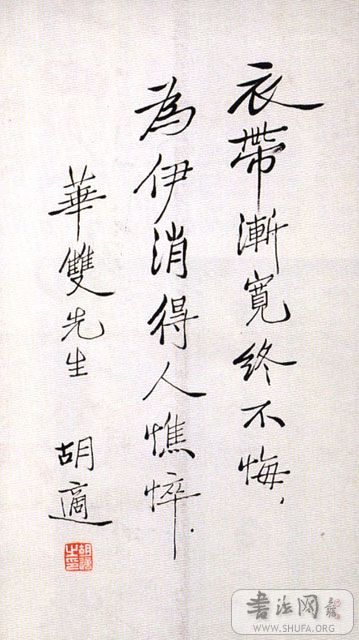 衣帶漸寬終不悔，
為伊消得人憔悴．
華雙先生
胡適
胡適之印
書法网
WWW.SHUFA.ORG